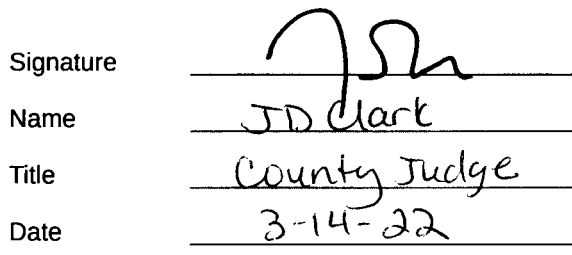 Signature
Name JD Clark
Title County Judge
Date 3-14-22